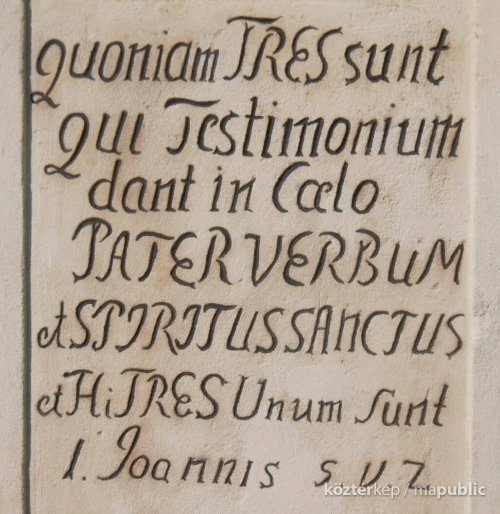 Quoniam TRES sunt
qui Testimonium
dant in Cœlo
PATER VERBUM
et SPIRITUS SANCTUS
et Hi TRES Unum sunt
1. Joannis 5. V. 7.
köztérkép / mapublic